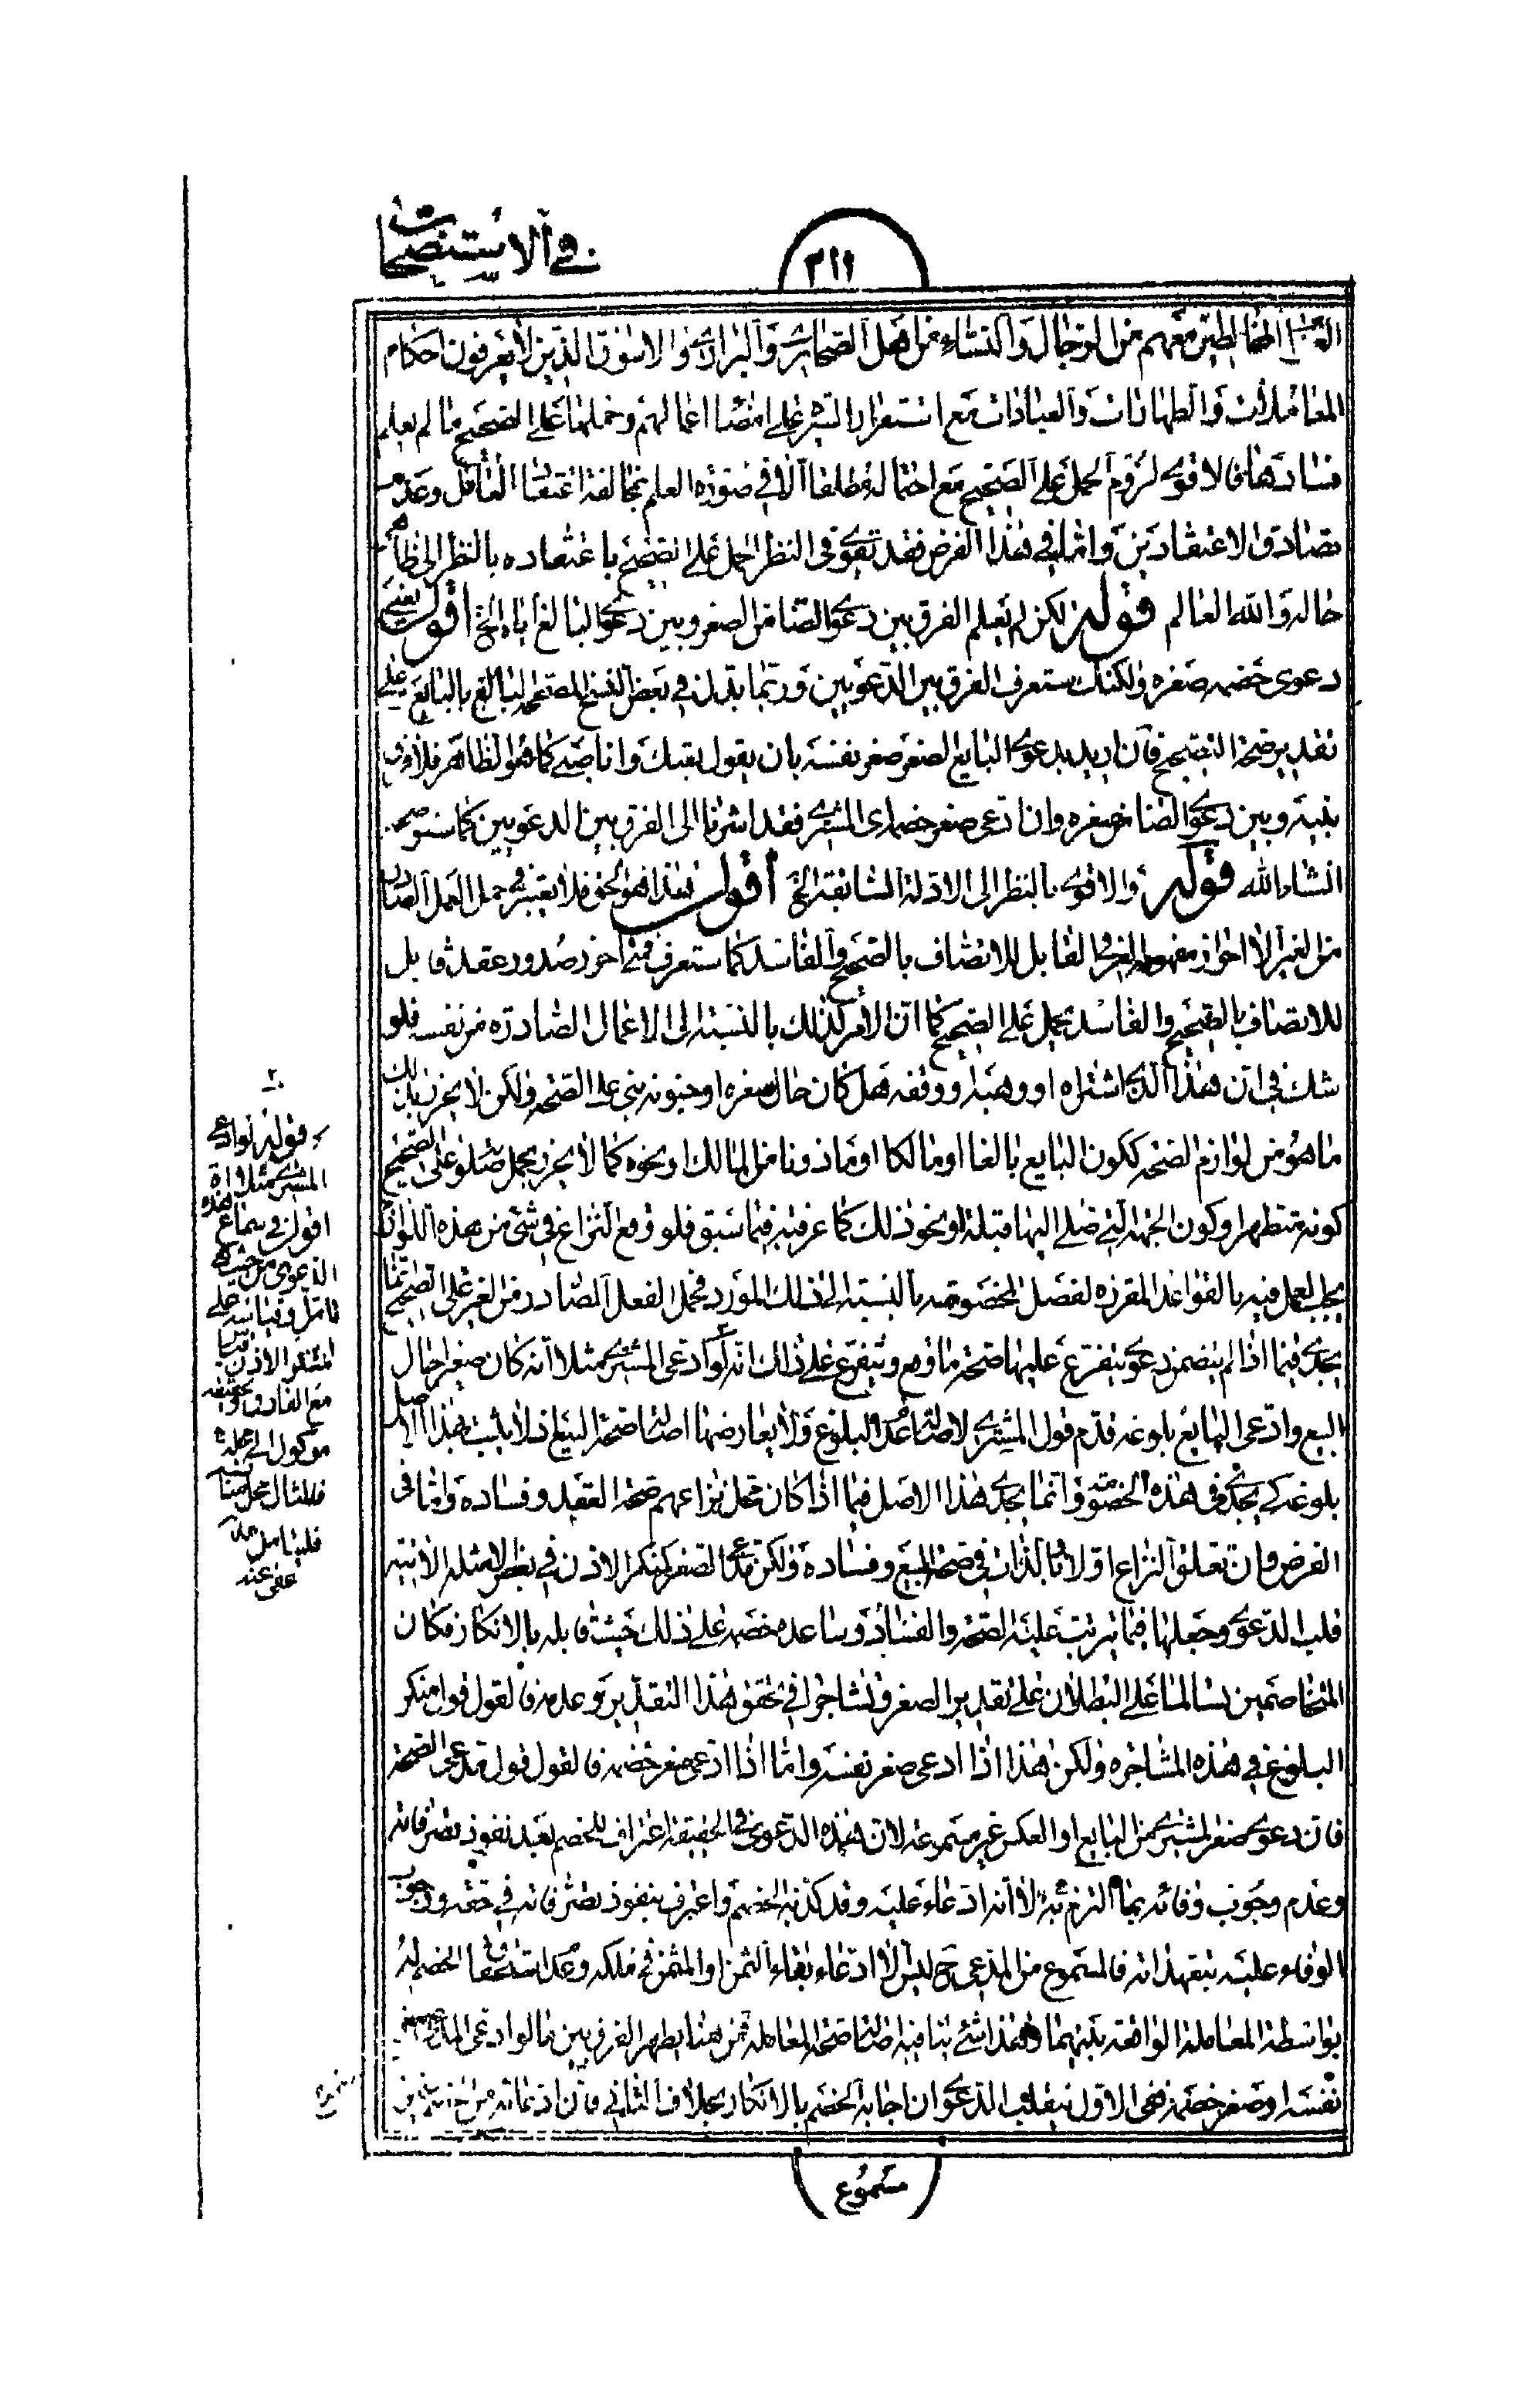 في الاستصحاب
٣١١
المخالطين معهم من الرجال والنساء من اهل الصحاري والبراري والاسوق الذين لا يعرفون احكام
المعاملات والطهارات والعبادات مع استقرار السيرة على امضاء اعمالهم وحملها على الصحيح ما لم يعلم
فسادها فالاقوى لزوم الحمل على الصحيح مع احتماله مطلقا الا في صورة العلم بمخالفة اعتقاد الفاعل وعدم
تصادق الاعتقادين واما في هذا الفرض فقد يقوى في النظر الحمل على الصحيح باعتقاده بالنظر الى ظاهر
حاله والله العالم قوله لكن لم يعلم الفرق بين دعوى الضامن الصغر وبين دعوى البايع اياه الخ اقول يعنى
دعوى خصمه صغره ولكنك ستعرف الفرق بين الدعويين وربما بدل في بعض النسخ المصححة البالغ بالبايع على
تقدير صحة التصحيح فان اريد بدعوى البايع الصغر صغر نفسه بان يقول بعتك وانا صبي كما هو الظاهر فلا فرق
بينه وبين دعوى الضامن صغره وان ادعى صغر خصمه اى المشترى فقد اشرنا الى الفرق بين الدعويين كما سنوضحه
انشاء الله قوله والاقوى بالنظر الى الادلة السابقة الخ اقول هذا هو الحق فلا يعتبر في حمل العمل الصادر
من الغير الا احراز مفهومه العرفى القابل للاتصاف بالصحيح والفاسد كما ستعرف فمتى احرز صدور عقد قابل
للاتصاف بالصحيح والفاسد يحمل على الصحيح كما ان الامر كذلك بالنسبة الى الاعمال الصادرة من نفسه فلو
شك في ان هذا الذى اشتراه او وهبه او وقفه هل كان حال صغره او جنونه بنى على الصحة ولكن لا يحرز بذلك
ما هو من لوازم الصحة ككون البايع بالغا او مالكا او ماذونا من المالك او نحوه كما لا يحرز بحمل صلوته على الصحيح
كونه متطهرا وكون الجهة التي صلى اليها قبلة او نحو ذلك كما عرفته فيما سبق فلو وقع النزاع في شئ من هذه اللوازم
يجب العمل فيه بالقواعد المقررة لفصل الخصومة بالنسبة الى ذلك المورد فحمل الفعل الصادر من الغير على الصحيح انما
يجدى فيما اذا لم يتضمن دعوى يتفرع عليها صحة ما وقع ويتفرع على ذلك انه لو ادعى المشترى مثلا انه كان صغيرا حال
البيع وادعى البايع بلوغه قدم قول المشترى لاصالة عدم البلوغ ولا يعارضها اصالة صحة البيع اذ لا يثبت بهذا الاصل
بلوغه كى يجدى في هذه الخصومة وانما يجدى هذا الاصل فيما اذا كان محل نزاعهم صحة العقد وفساده واما في
الفرض وان تعلق النزاع اولا وبالذات في صحة البيع وفساده ولكن مدعى الصغر كمنكر الاذن في بعض الامثلة الاتية
قلب الدعوى وجعلها فيما يترتب عليه الصحة والفساد وساعده خصمه على ذلك حيث قابله بالانكار فكان
المتخاصمين تسالما على البطلان على تقدير الصغر وتشاجرا في تحقق هذا التقدير وعدمه فالقول قول منكر
البلوغ في هذه المشاجرة ولكن هذا اذا ادعى صغر نفسه واما اذا ادعى صغر خصمه فالقول قول مدعى الصحة
فان دعوى صغر المشترى من البايع او العكس غير مسموعة لان هذه الدعوى في الحقيقة اعتراف للخصم بعدم نفوذ تصرفاته
وعدم وجوب وفائه بما التزم به لا انه ادعاء عليه وقد كذبه الخصم واعترف بنفوذ تصرفاته في حقه ووجوب
الوفاء عليه بتعهداته فالمسموع من المدعى ح ليس الا ادعاء بقاء الثمن او المثمن في ملكه وعدم استحقاق الخصم له
بواسطة المعاملة الواقعة بينهما وهذا شئ ينافيه اصالة صحة المعاملة فمن هنا يظهر الفرق بين ما لو ادعى البايع صغر
نفسه او صغر خصمه ففي الاول ينقلب الدعوى ان اجابه الخصم بالانكار بخلاف الثاني فان ادعائه من خصمه غير
مسموع
قوله لو ادعى
المشترى مثلا اه
اقول في سماع هذه
الدعوى من حيث هي
تامل وقياسه على
انكار الاذن قياس
مع الفارق وتحقيقه
موكول الى محله
فالمثال محل مناقشة
فليتامل منه
عفى عنه